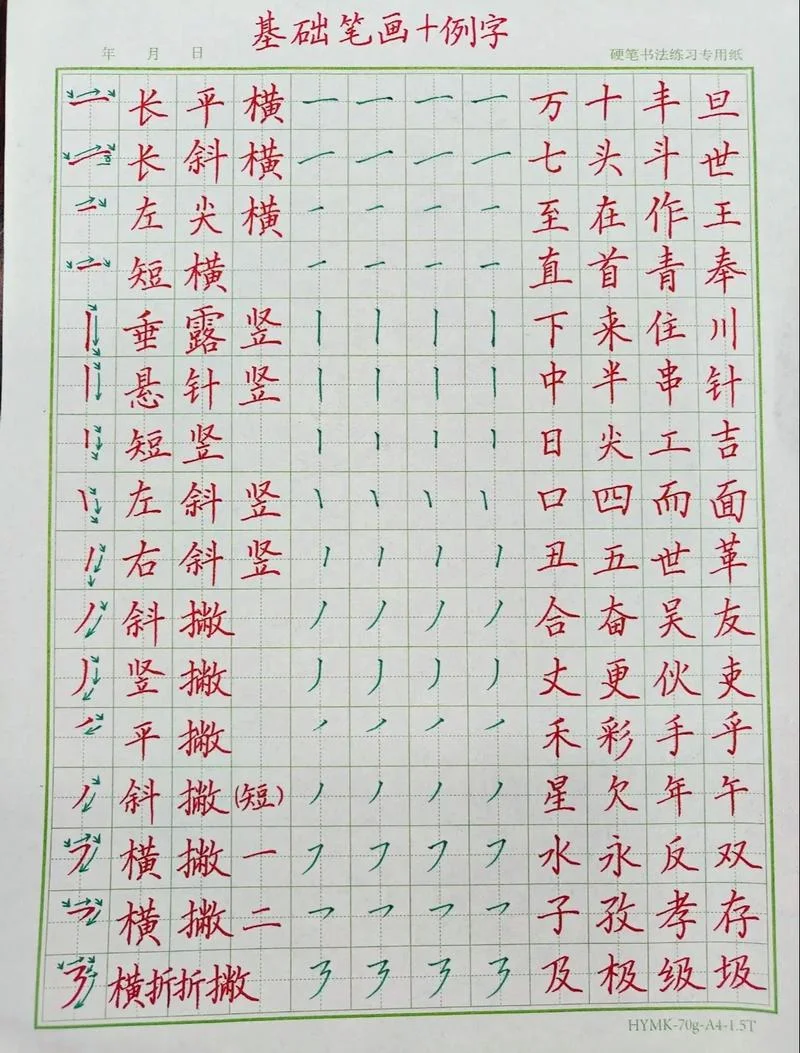 基础笔画+例字
年 月 日 硬笔书法练习专用纸
一 长平横 一 一 一 一 万十丰旦
一 长斜横 一 一 一 一 七头斗世
一 左尖横 一 一 一 一 至在作王
一 短横 一 一 一 一 直首青奉
丨 垂露竖 丨 丨 丨 丨 下来住川
丨 悬针竖 丨 丨 丨 丨 中半串针
丨 短竖 丨 丨 丨 丨 日尖工吉
丨 左斜竖 丨 丨 丨 丨 口四而面
丨 右斜竖 丨 丨 丨 丨 丑五世革
丿 斜撇 丿 丿 丿 丿 合奋吴友
丿 竖撇 丿 丿 丿 丿 丈更伙吏
丿 平撇 丿 丿 丿 丿 禾彩手乎
丿 斜撇(短) 丿 丿 丿 丿 星欠年午
㇇ 横撇一 ㇇ ㇇ ㇇ ㇇ 水永反双
㇇ 横撇二 ㇇ ㇇ ㇇ ㇇ 子孜孝存
㇋ 横折折撇 ㇋ ㇋ ㇋ ㇋ 及极级圾
HYMK-70g-A4-1.5T